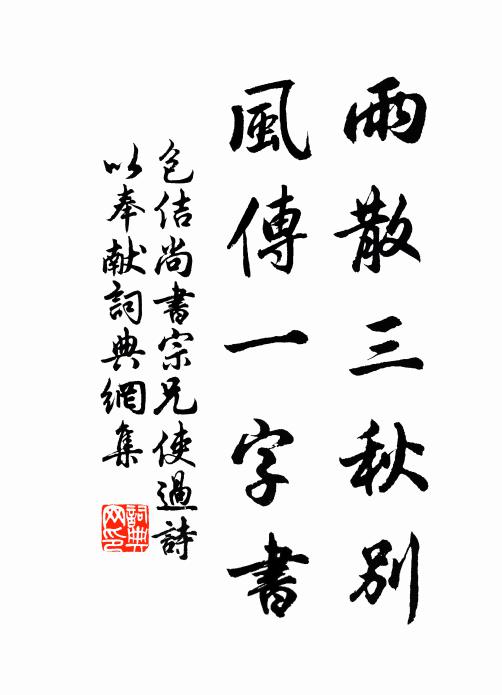 雨散三秋别
風傳一字書
包佶尚書宗兄使過詩
以奉献詞典網集
詞典网印